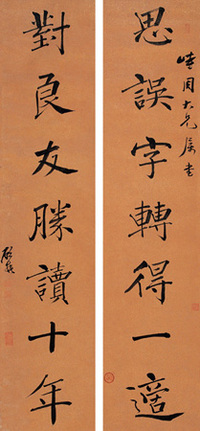 思誤字轉得一適
大兄屬書
對良友勝讀十年